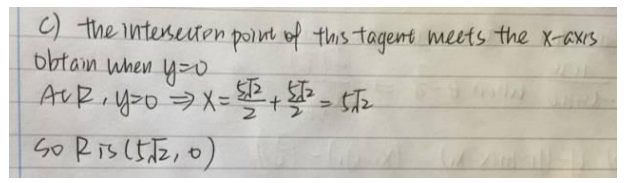 c) the intersection point of this tagent meets the x-axis
obtain when y=0
At R, y=0 ⇒ x = 5√2/2 + 5√2/2 = 5√2
So R is (5√2, 0)